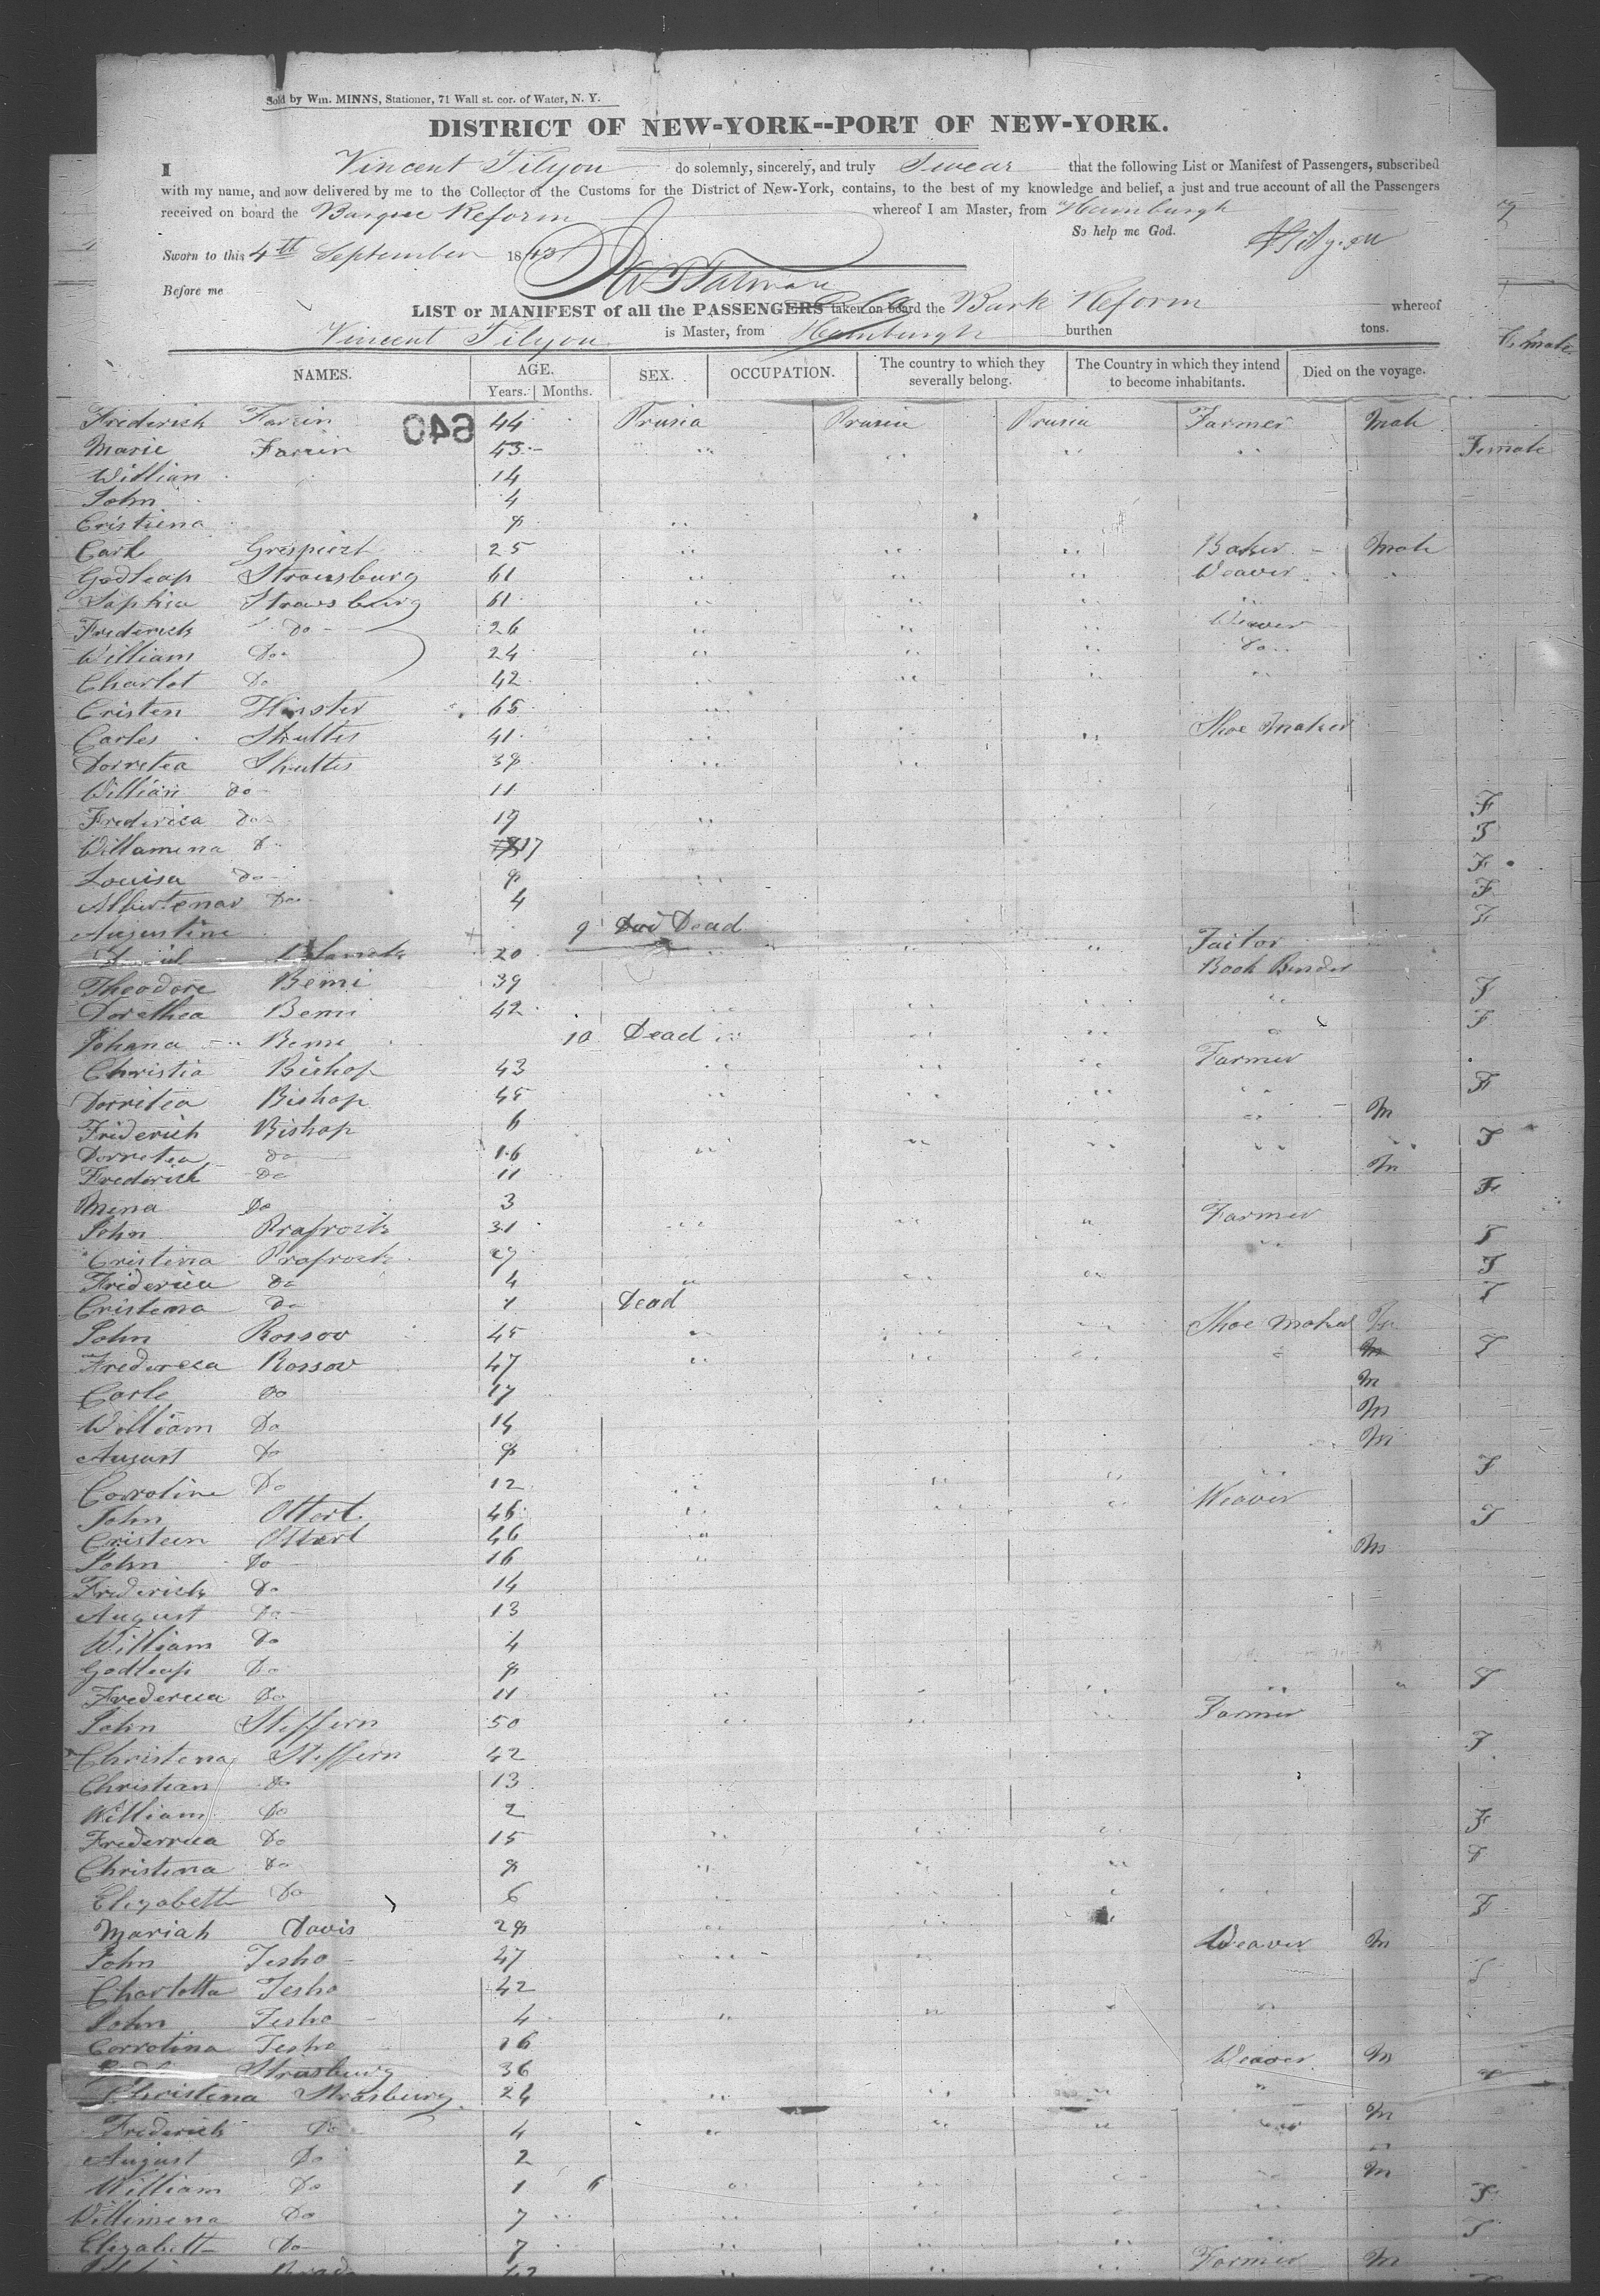 Sold by Wm. MINNS, Stationer, 71 Wall st. cor. of Water, N. Y.
DISTRICT OF NEW-YORK--PORT OF NEW-YORK.
I Vincent Tilyou do solemnly, sincerely, and truly Swear that the following List or Manifest of Passengers, subscribed
with my name, and now delivered by me to the Collector of the Customs for the District of New-York, contains, to the best of my knowledge and belief, a just and true account of all the Passengers
received on board the Barque Reform whereof I am Master, from Hamburgh
So help me God. VTilyou
Sworn to this 4th September 184
Before me
LIST or MANIFEST of all the PASSENGERS taken on board the Bark Reform whereof
Vincent Tilyou is Master, from Hamburgh burthen tons.
NAMES. AGE. Years. Months. SEX. OCCUPATION. The country to which they severally belong. The Country in which they intend to become inhabitants. Died on the voyage.
640
Frederich 44 Prusia Prusia Prusia Farmer Male
Marie 43 " " " " Female
William 14
John 4
Cristiena 8 "
Carl 25 " " " Baker Male
Godleap Strausburg 61 " " " Weaver "
Saphia Strausburg 61 " " " "
Frederich do 26 " " " Weaver
William Do 24 " " " Do
Charlot Do 42 " " " "
Cristen 65 "
Carles Shultes 41 " " " Shoe Maker
Dorretea Shultes 38 " "
William do 11
Frederica do 19 " F
Willamina D 17 F
Louisa do 8 " F
Do 4 F
Augustine 9 Dead F
20 " " " Tailor
Theodore Bemi 39 Book Binder
Dorethea Bemi 42 " " " " F
Johana Bemi 10 Dead " " " " F
Christia Bishop 43 " " " Farmer
Dorritea Bishop 45 " " " " F
Friderich Bishop 6 " M
Dorretea do 16 " " " " " F
Frederick Do 11 M
Mena Do 3 F
John Prafrock 31 " " " Farmer
Cristina Prafrock 29 " F
Friderica Do 4 " " " F
Cristena Do 1 Dead F
John Rossov 45 " " " Shoe Maker M
Frederica Rossov 47 " " " " F
Carle Do 17 M
William Do 14 M
August Do 8 M
Carroline Do 12 " " " " F
John Ottort 46 " " " Weaver
Cristeen Ottert 46 " F
John Do 16 " M
Frederick Do 14
August Do 13
William Do 4
Godleap Do 8
Frederica Do 11 " " " " " F
John Steffern 50 " " " Farmer
Christena Steffern 42 F
Christian Do 13
William Do 2
Frederrica Do 15 " " " F
Christena Do 8 " " " F
Elizabeth Do 6 " " " "
Mariah Davis 28 " " F
John Tesho 47 " " Weaver M
Charlotta Tesho 42 F
John Tesho 4 " " " "
Corrotina Tesho 16
Strasburg 36 Weaver M
Christena Strasburg 24 " " " "
Frederick Do 4 " " " " M
August Do 2 "
William Do 1 6 " " " " M
Willimena Do 7 " " " " F
Elizabeth Do 7 " " " " F
42 " " " Farmer M